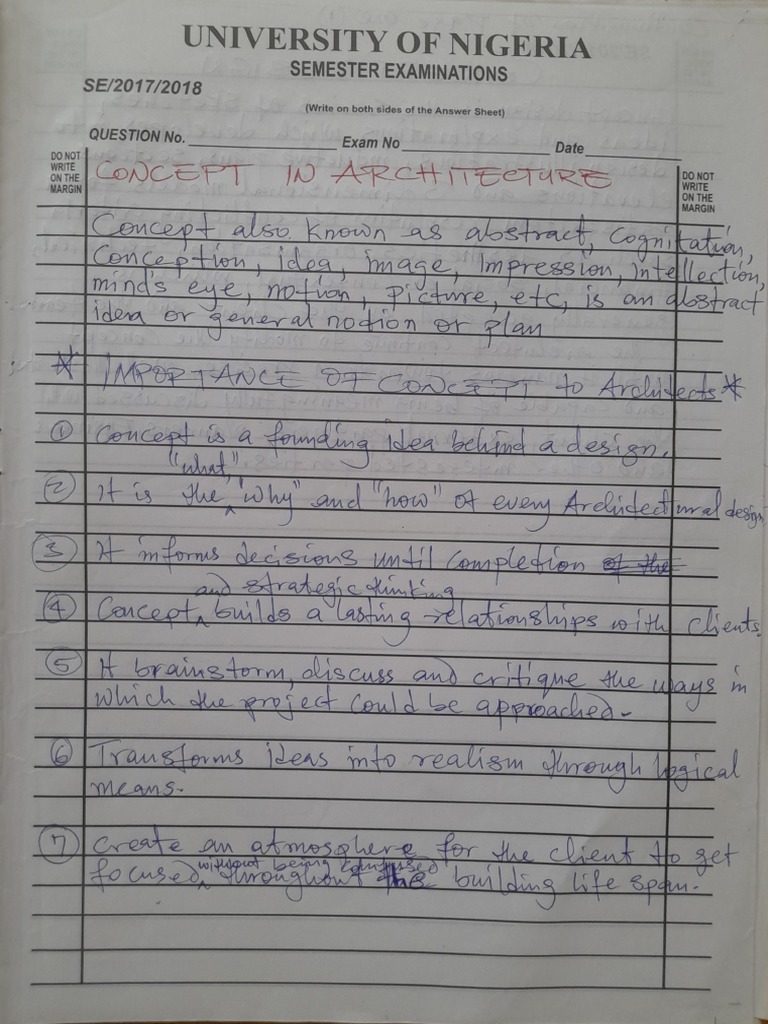 UNIVERSITY OF NIGERIA
SEMESTER EXAMINATIONS
SE/2017/2018
(Write on both sides of the Answer Sheet)
QUESTION No. Exam No Date
DO NOT WRITE ON THE MARGIN
DO NOT WRITE ON THE MARGIN
CONCEPT IN ARCHITECTURE
Concept also known as abstract, Cognitation,
Conception, idea, image, Impression, Intellection,
mind's eye, notion, Picture, etc, is an abstract
idea or general notion or plan
* IMPORTANCE OF CONCEPT to Architects *
① Concept is a founding idea behind a design.
"what,"
② It is the ^ "why" and "how" of every Architectural design
③ It informs decisions until completion of the
and strategic thinking
④ Concept ^ builds a lasting relationships with clients.
⑤ It brainstorm, discuss and critique the ways in
which the project could be approached.
⑥ Transforms ideas into realism through logical
means.
⑦ Create an atmosphere for the client to get
without being confused
focused ^ throughout the building life span.